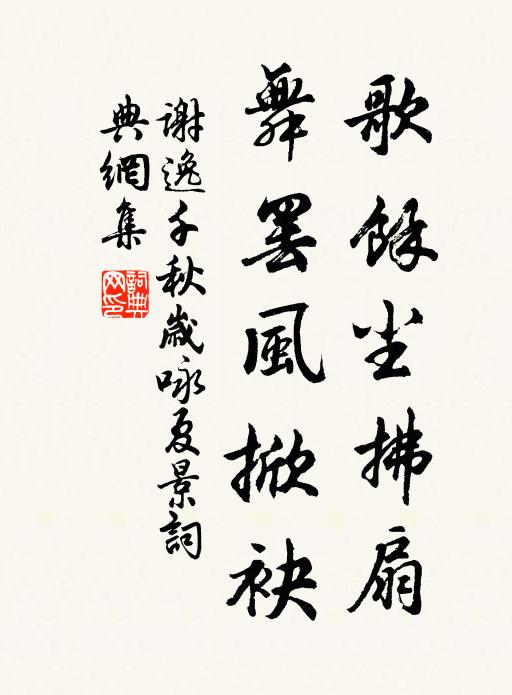 歌餘塵拂扇
舞罷風掀袂
謝逸千秋歲咏夏景詞
典網集
詞典
网印